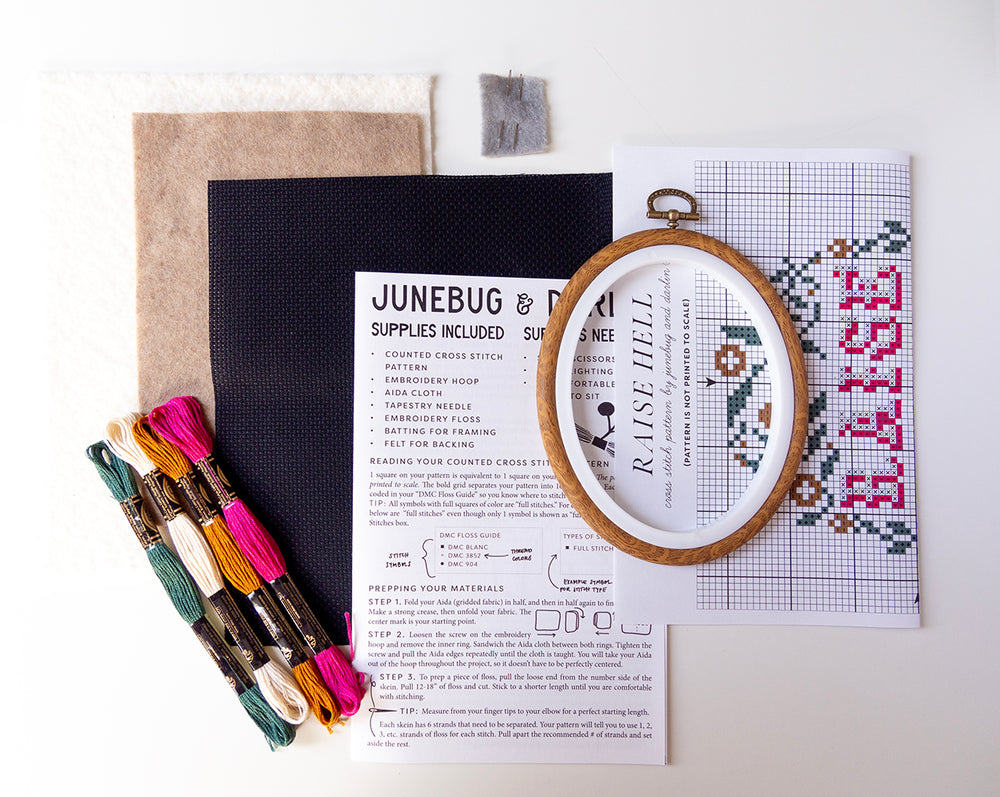 JUNEBUG &
SUPPLIES INCLUDED
• COUNTED CROSS STITCH
PATTERN
• EMBROIDERY HOOP
• AIDA CLOTH
• TAPESTRY NEEDLE
• EMBROIDERY FLOSS
• BATTING FOR FRAMING
• FELT FOR BACKING
READING YOUR COUNTED CROSS STITCH
1 square on your pattern is equivalent to 1 square on your
printed to scale. The bold grid separates your pattern into
coded in your "DMC Floss Guide" so you know where to stitch
TIP: All symbols with full squares of color are "full stitches." For
below are "full stitches" even though only 1 symbol is shown as
Stitches box.
STITCH
SYMBOLS
DMC FLOSS GUIDE
■ DMC BLANC
- DMC 3852
■ DMC 904
THREAD
COLORS
TYPES OF
■ FULL STITCH
EXAMPLE SYMBOL
FOR STITCH TYPE
PREPPING YOUR MATERIALS
STEP 1. Fold your Aida (gridded fabric) in half, and then in half again to
Make a strong crease, then unfold your fabric. The
center mark is your starting point.
STEP 2. Loosen the screw on the embroidery
hoop and remove the inner ring. Sandwich the Aida cloth between both rings. Tighten the
screw and pull the Aida edges repeatedly until the cloth is taught. You will take your Aida
out of the hoop throughout the project, so it doesn't have to be perfectly centered.
STEP 3. To prep a piece of floss, pull the loose end from the number side of the
skein. Pull 12-18" of floss and cut. Stick to a shorter length until you are comfortable
with stitching.
TIP: Measure from your finger tips to your elbow for a perfect starting length.
Each skein has 6 strands that need to be separated. Your pattern will tell you to use 1, 2,
3, etc. strands of floss for each stitch. Pull apart the recommended # of strands and set
aside the rest.
RAISE HELL
cross stitch pattern by junebug and darlin
(PATTERN IS NOT PRINTED TO SCALE)
RAISE